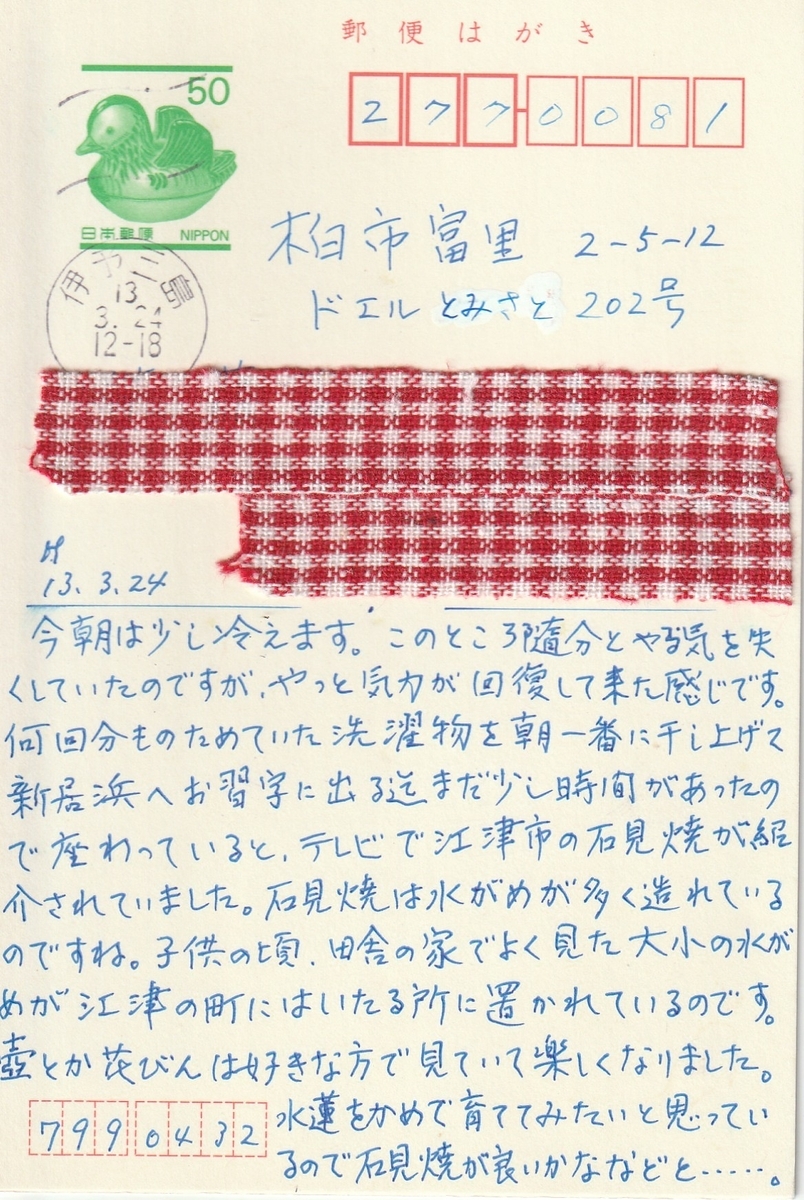 郵便はがき
50
日本郵便 NIPPON
2770081
柏市富里 2-5-12
ドエルとみさと 202号
伊予三島
13
3.24
12-18
H
13.3.24
今朝は少し冷えます。このところ随分とやる気を失
くしていたのですが、やっと気力が回復して来た感じです。
何回分ものためていた洗濯物を朝一番に干し上げて
新居浜へお習字に出る迄まだ少し時間があったの
で座わっていると、テレビで江津市の石見焼が紹
介されていました。石見焼は水がめが多く造れている
のですね。子供の頃、田舎の家でよく見た大小の水が
めが江津の町にはいたる所に置かれているのです。
壺とか花びんは好きな方で見ていて楽しくなりました。
水蓮をかめで育ててみたいと思ってい
るので石見焼が良いかななどと……。
7990432